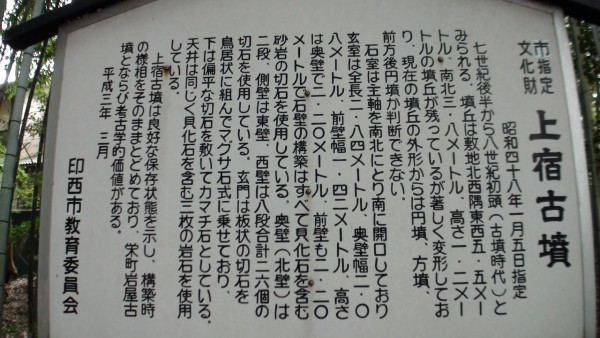 市指定
文化財
上宿古墳
昭和四十八年一月五日指定
七世紀後半から八世紀初頭（古墳時代）と
みられる。墳丘は敷地北西隅東西五・五メー
トル、南北三・八メートル、高さ一・二メー
トルの墳丘が残っているが著しく変形してお
り、現在の墳丘の外形からは円墳、方墳、
前方後円墳か判断できない。
石室は主軸を南北にとり南に開口しており
玄室は全長二・八四メートル、奥壁幅二・〇
八メートル、前壁幅一・四二メートル、高さ
は奥壁で二・二〇メートル、前壁も二・二〇
メートルで石壁の構築はすべて貝化石を含む
砂岩の切石を使用している。奥壁（北壁）は
二段、側壁は東壁、西壁は八段合計二六個の
切石を使用している。玄門は板状の切石を
鳥居状に組んでマグサ石式に乗せており、
下は偏平な切石を敷いてカマチ石としている。
天井は同じく貝化石を含む三枚の岩石を使用
している。
上宿古墳は良好な保存状態を示し、構築時
の様相をそのままとどめており、栄町岩屋古
墳とならび考古学的価値がある。
平成三年　三月
印西市教育委員会